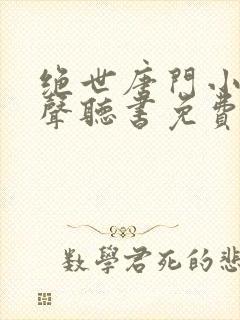 绝世唐門小
聲聽書免費
数學君死的悲